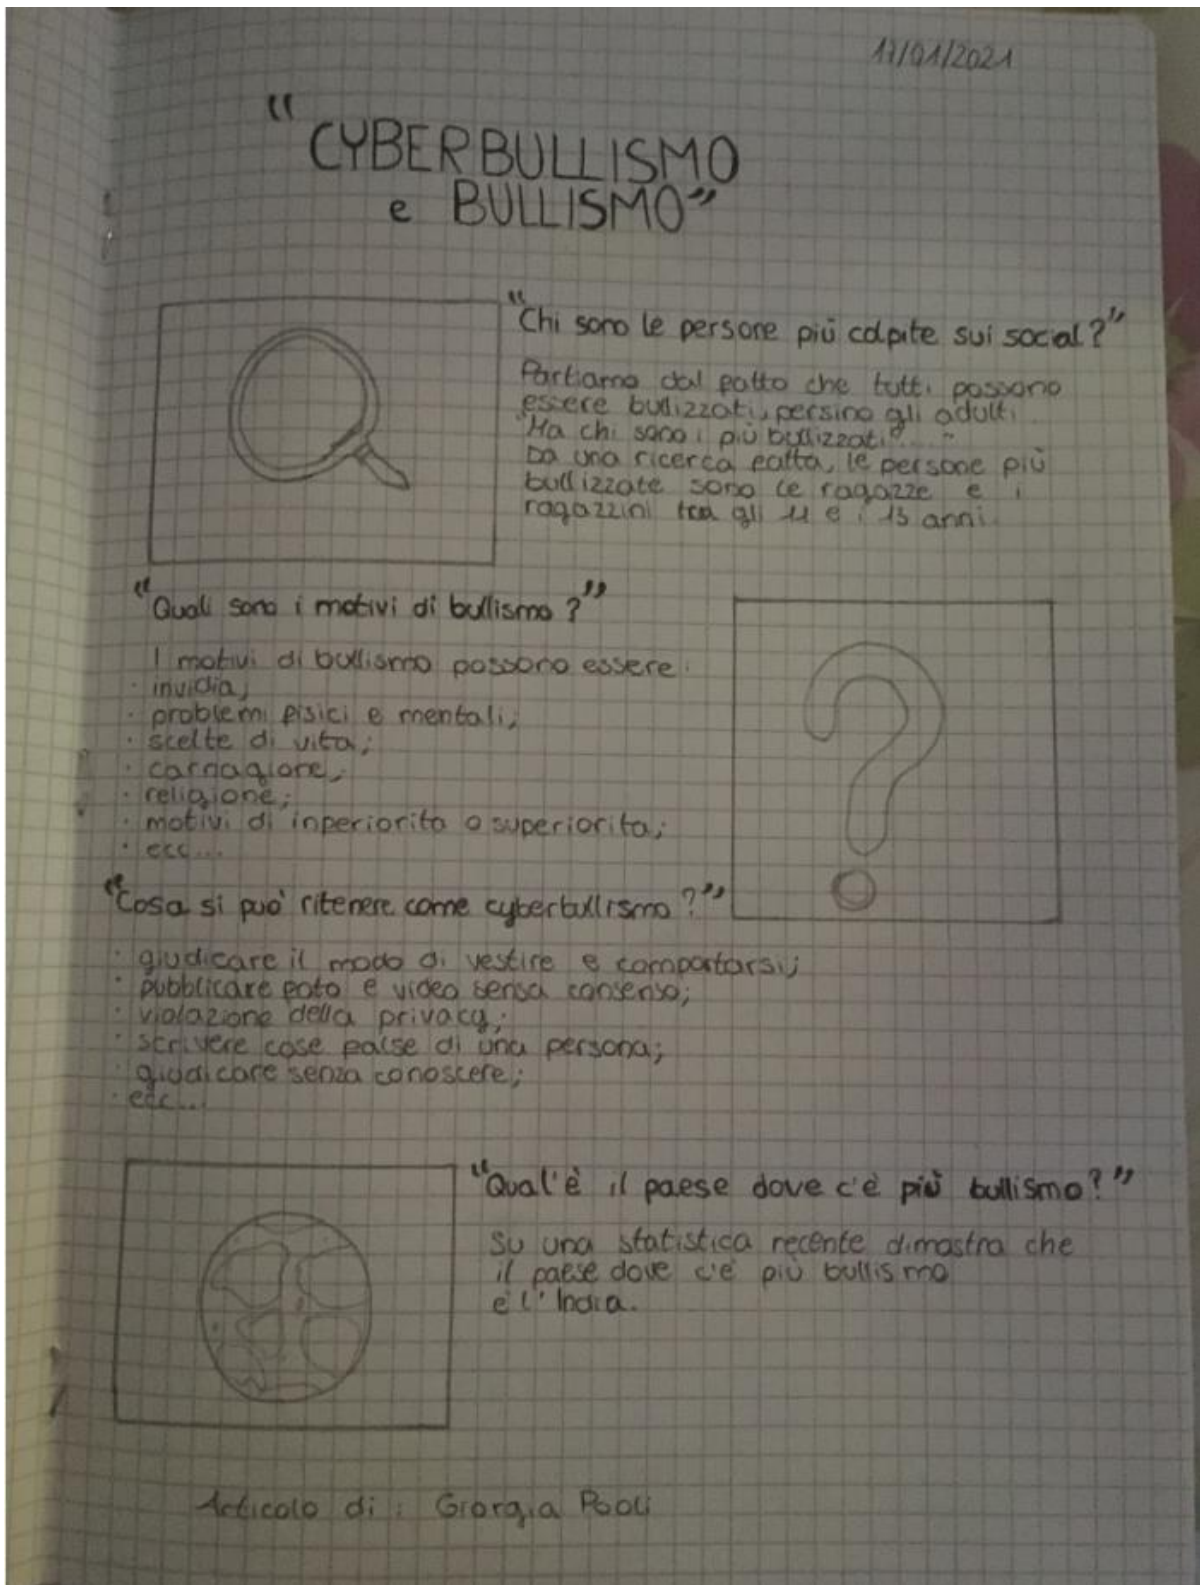 17/01/2021
"CYBERBULLISMO
e BULLISMO"
"Chi sono le persone più colpite sui social?"
Partiamo dal fatto che tutti possono
essere bullizzati, persino gli adulti.
"Ma chi sono i più bullizzati?...."
Da una ricerca fatta, le persone più
bullizzate sono le ragazze e i
ragazzini tra gli 11 e i 13 anni.
"Quali sono i motivi di bullismo?"
I motivi di bullismo possono essere:
· invidia;
· problemi fisici e mentali;
· scelte di vita;
· carnagione;
· religione;
· motivi di inferiorita o superiorita;
· ecc....
"Cosa si può ritenere come cyberbullismo?"
· giudicare il modo di vestire e comportarsi;
· pubblicare foto e video sensa consenso;
· violazione della privacy;
· scrivere cose false di una persona;
· giudicare senza conoscere;
· ecc....
"Qual'è il paese dove c'è più bullismo?"
Su una statistica recente dimostra che
il paese dove c'è più bullismo
è l'India.
Articolo di: Giorgia Paoli